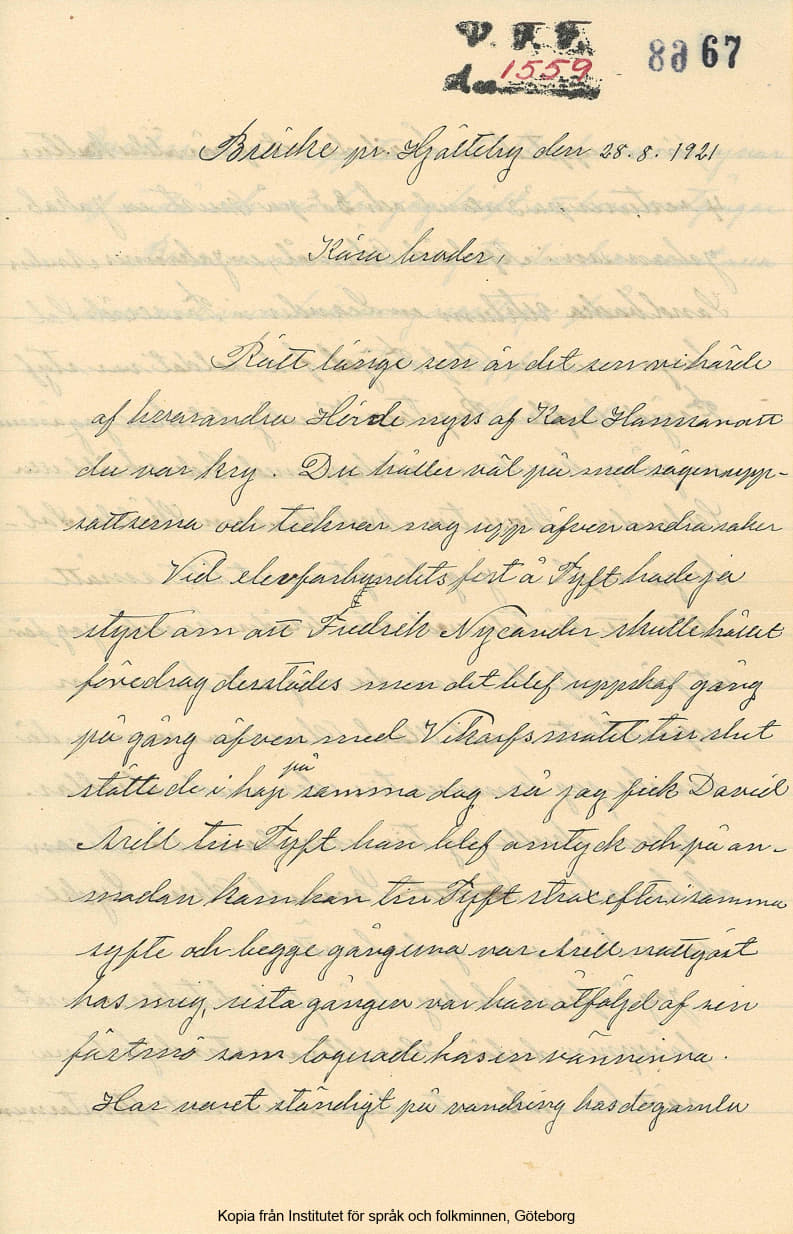 V. F. F.
1559
8867
Bräcke pr. Hjälteby den 28. 8. 1921
Kära broder,
Rätt länge sen är det sen vi hörde
af hvarandra Hörde nyss af Karl Hansson att
du var kry. Du håller väl på med sägenupp-
sattserna och tecknar nog upp äfven andra saker
Vid elevforbundets fest å Tyft hade ja
styrt om att Fredrik Nycander skulle hållet
föredrag derstädes men det blef uppskof gång
på gång äfven med Vikarfsmötet till slut
stötte de i hop på samma dag så jag fick David
Arill till Tyft han blef omtyck och på an-
modan kom han till Tyft strax efter i samma
syfte och begge gångerna var Arill nattgäst
hos mig, sista gången var han åtföljd af sin
fästmö som logerade hos en väninna.
Har varet ständigt på vandring hos de gamla
Kopia från Institutet för språk och folkminnen, Göteborg